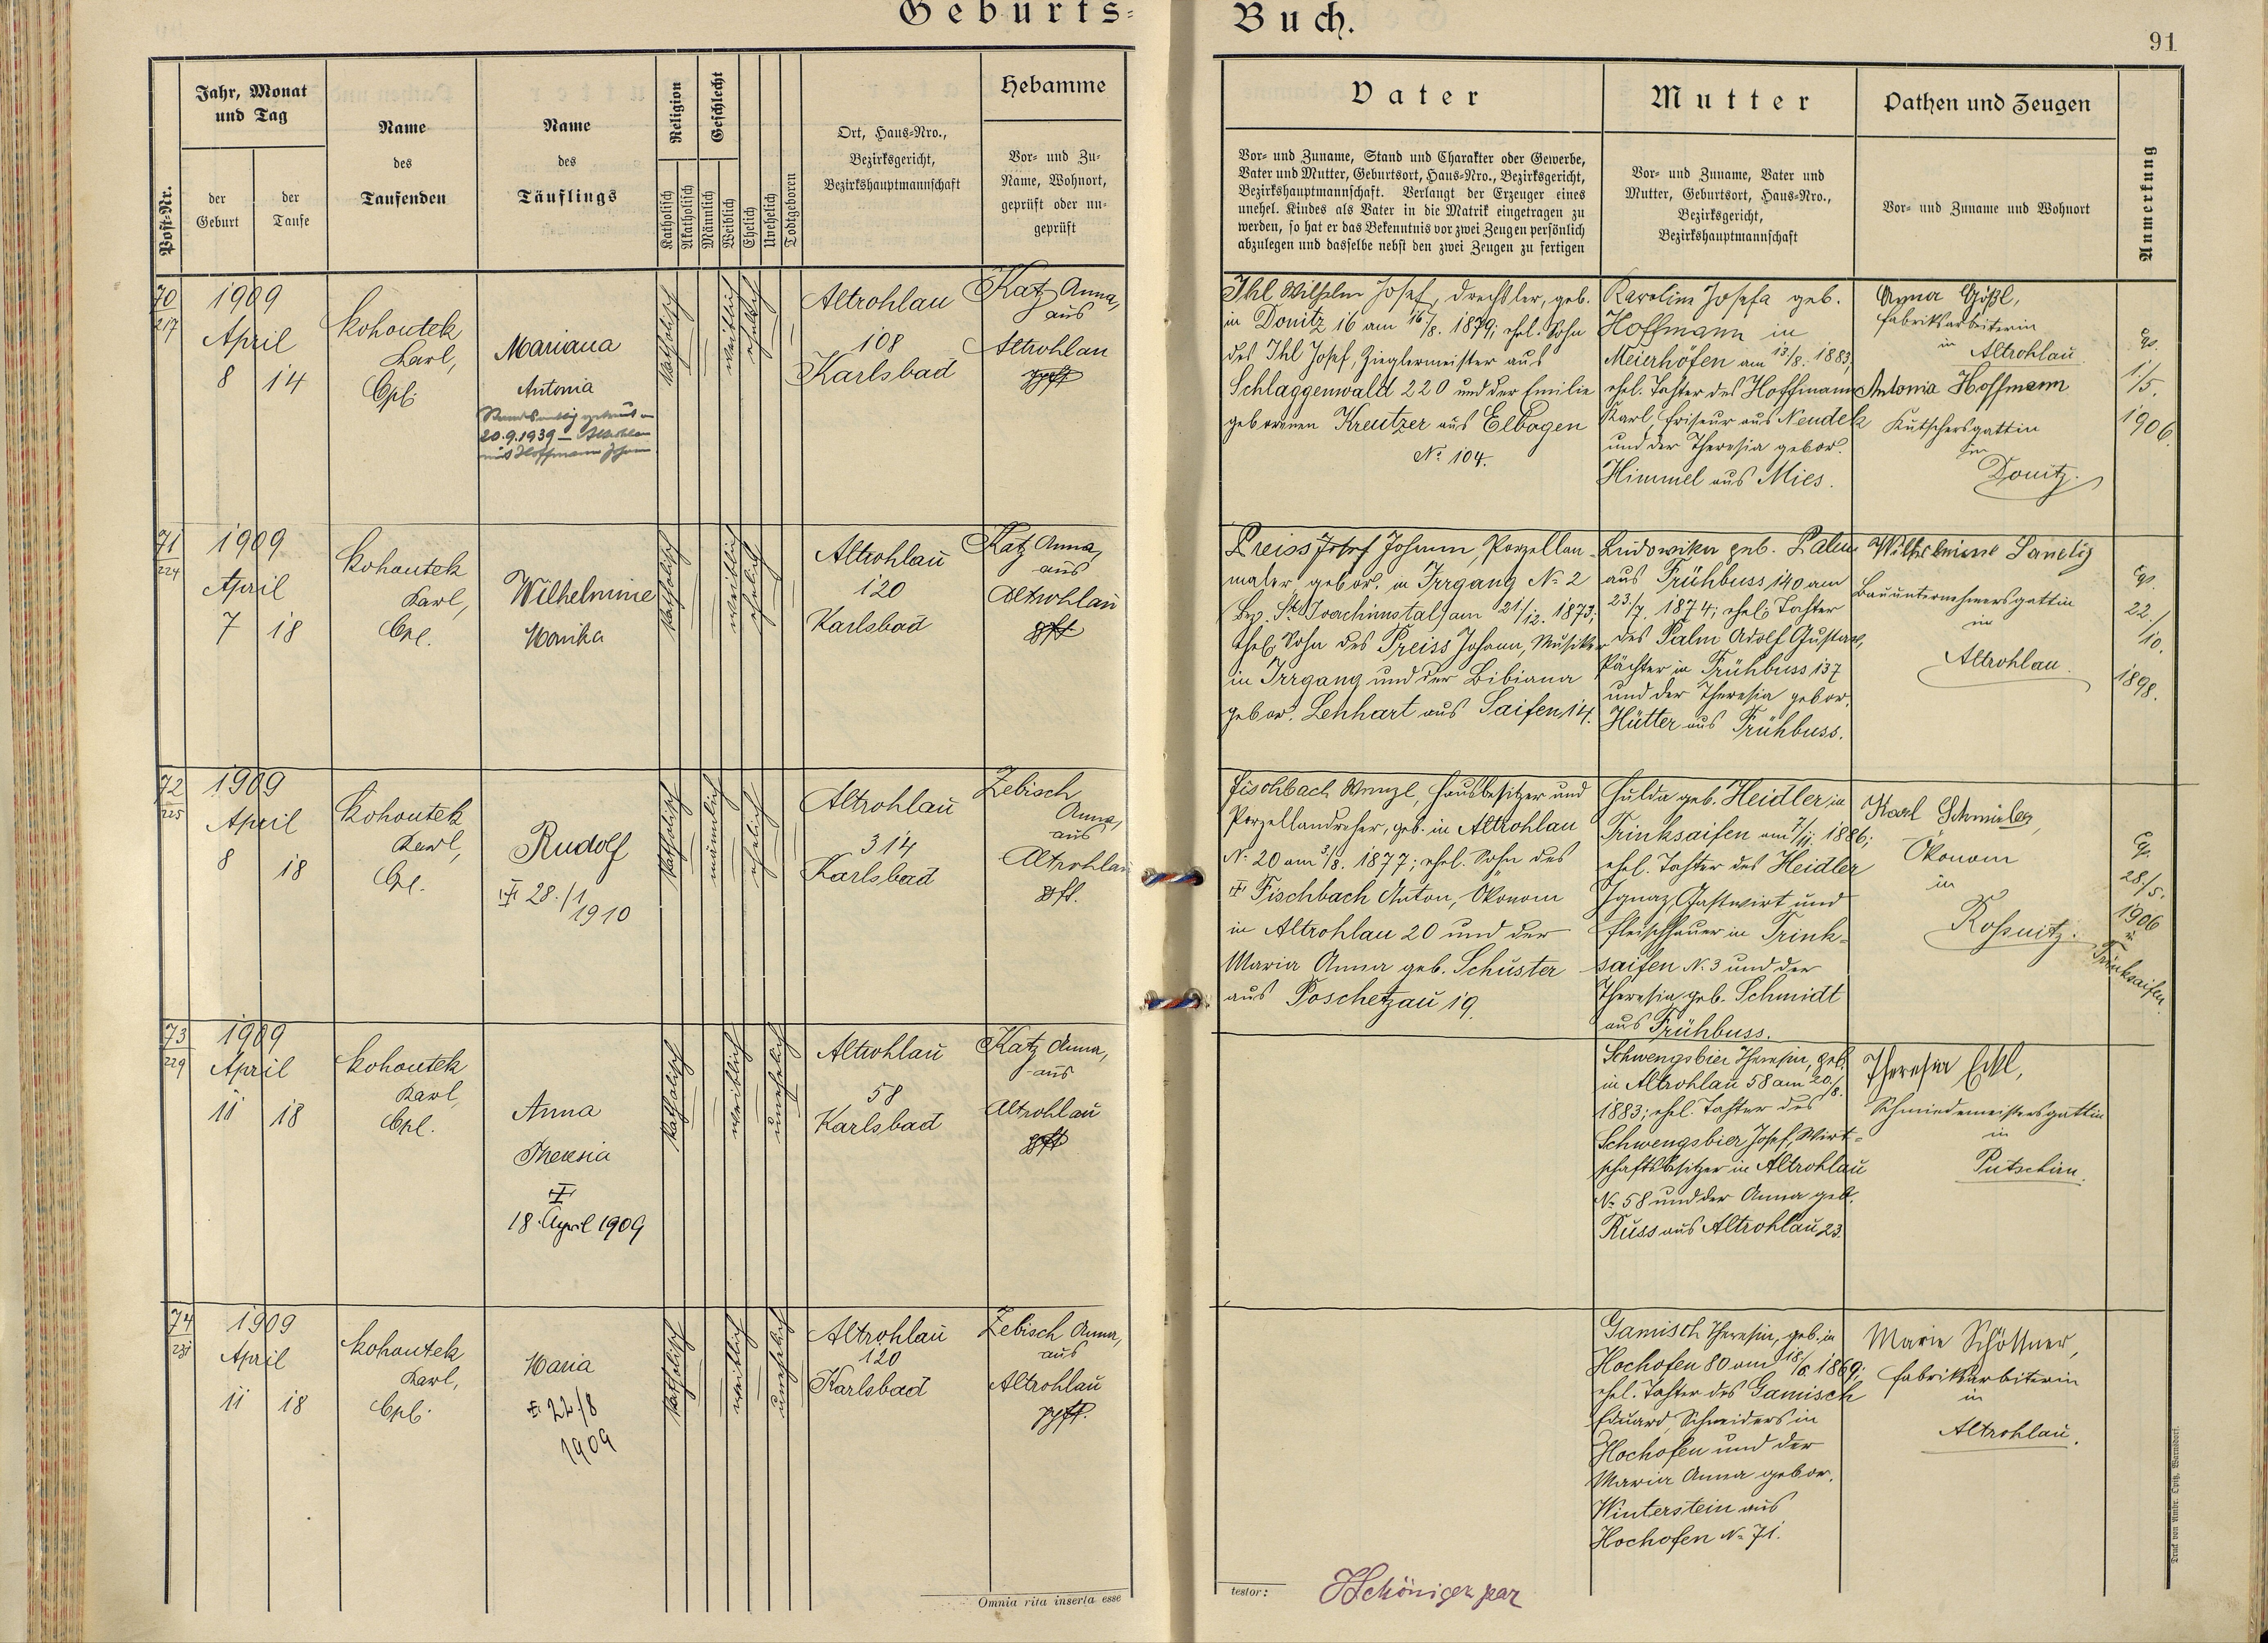 Geburts-
Buch.
91
Post-Nr.
Jahr, Monat
und Tag
der
Geburt
der
Taufe
Name
des
Taufenden
Name
des
Täuflings
Religion
Katholisch
Akatholisch
Geschlecht
Männlich
Weiblich
Ehelich
Unehelich
Todtgeboren
Ort, Haus-Nro.,
Bezirksgericht,
Bezirkshauptmannschaft
Hebamme
Vor- und Zu-
Name, Wohnort,
geprüft oder un-
geprüft
Vater
Vor- und Zuname, Stand und Charakter oder Gewerbe,
Vater und Mutter, Geburtsort, Haus-Nro., Bezirksgericht,
Bezirkshauptmannschaft. Verlangt der Erzeuger eines
unehel. Kindes als Vater in die Matrik eingetragen zu
werden, so hat er das Bekenntnis vor zwei Zeugen persönlich
abzulegen und dasselbe nebst den zwei Zeugen zu fertigen
Mutter
Vor- und Zuname, Vater und
Mutter, Geburtsort, Haus-Nro.,
Bezirksgericht,
Bezirkshauptmannschaft
Pathen und Zeugen
Vor- und Zuname und Wohnort
Anmerkung
70
217
1909
April
8 14
Kohoutek
Karl,
Cpl.
Mariana
Antonia
20.9.1939 – Altrohlau
mit Hoffmann Johann
katholisch
weiblich
ehelich
Altrohlau
108
Karlsbad
Katz Anna,
aus
Altrohlau
gpft
Ihl Wilhelm Josef, Drechsler, geb.
in Donitz 16 am 16/8. 1879; ehel. Sohn
des Ihl Josef, Zieglermeister aus
Schlaggenwald 220 und der Emilie
geborenen Kreutzer aus Elbogen
No 104.
Karolina Josefa geb.
Hoffmann in
Meierhöfen am 13/8. 1883;
ehel. Tochter des Hoffmann
Karl, Friseur aus Neudek
und der Theresia gebor.
Himmel aus Mies.
Anna Gößl,
Fabriksarbeiterin
in
Altrohlau
Antonia Hoffmann
Kutschersgattin
in
Donitz.
1/5.
1906.
71
224
1909
April
7 18
Kohoutek
Karl,
Cpl.
Wilhelmine
Monika
katholisch
weiblich
ehelich
Altrohlau
120
Karlsbad
Katz Anna,
aus
Altrohlau
gpft
Preiss Josef Johann, Porzellan-
maler gebor. in Irrgang No 2
Bez. St. Joachimstal am 21/12. 1873;
ehel. Sohn des Preiss Johann, Musiker
in Irrgang und der Bibiana
gebor. Lenhart aus Saifen 14.
Ludowika geb. Palm
aus Frühbuss 140 am
23/7. 1874; ehel. Tochter
des Palm Adolf Gustav,
Pächter in Frühbuss 137
und der Theresia gebor.
Hütter aus Frühbuss.
Wilhelmine
Bauunternehmersgattin
in
Altrohlau.
22./
10.
1898.
72
225
1909
April
8 18
Kohoutek
Karl,
Cpl.
Rudolf
28./1
1910
katholisch
männlich
ehelich
Altrohlau
314
Karlsbad
Zebisch
Anna,
aus
Altrohlau
gpft.
Fischbach Wenzl, Hausbesitzer und
Porzellandreher, geb. in Altrohlau
No 20 am 3/8. 1877; ehel. Sohn des
Fischbach Anton, Ökonom
in Altrohlau 20 und der
Maria Anna geb. Schuster
aus Poschetzau 19.
Hulda geb. Heidler in
Trinksaifen am 7/11. 1886;
ehel. Tochter des Heidler
Ignaz, Gastwirt und
Fleischhauer in Trink-
saifen No 3 und der
Theresia geb. Schmidt
aus Frühbuss.
Karl
Ökonom
in
Roßnitz.
28./5.
1906
in
Trinksaifen.
73
229
1909
April
11 18
Kohoutek
Karl,
Cpl.
Anna
Theresia
18. April 1909
katholisch
weiblich
unehelich
Altrohlau
58
Karlsbad
Katz Anna,
aus
Altrohlau
gpft
Schwengsbier Theresia, geb.
in Altrohlau 58 am 20./8.
1883; ehel. Tochter des
Schwengsbier Josef, Wirt-
schaftsbesitzer in Altrohlau
No 58 und der Anna geb.
Russ aus Altrohlau 23.
Theresia
Schmiedemeistersgattin
in
Putschirn.
74
231
1909
April
11 18
Kohoutek
Karl,
Cpl.
Maria
22/8
1909
katholisch
weiblich
unehelich
Altrohlau
120
Karlsbad
Zebisch Anna,
aus
Altrohlau
gpft.
Gamisch Theresia, geb. in
Hochofen 80 am 18/6. 1869;
ehel. Tochter des Gamisch
Eduard, Schneiders in
Hochofen und der
Maria Anna gebor.
Winterstein aus
Hochofen No 71.
Marie Schöttner,
Fabriksarbeiterin
in
Altrohlau.
Omnia rita inserta esse
testor:
Druck von Ambr. Opitz, Warnsdorf.